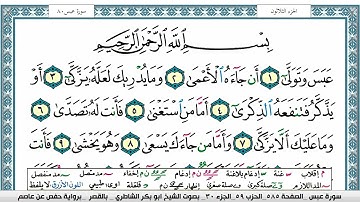 سورة عبس ٨٠
الجزء الثلاثون
بِسْمِ اللَّهِ الرَّحْمَٰنِ الرَّحِيمِ
عَبَسَ وَتَوَلَّىٰ ١ أَن جَاءَهُ الْأَعْمَىٰ ٢ وَمَا يُدْرِيكَ لَعَلَّهُ يَزَّكَّىٰ ٣ أَوْ
يَذَّكَّرُ فَتَنفَعَهُ الذِّكْرَىٰ ٤ أَمَّا مَنِ اسْتَغْنَىٰ ٥ فَأَنتَ لَهُ تَصَدَّىٰ ٦
وَمَا عَلَيْكَ أَلَّا يَزَّكَّىٰ ٧ وَأَمَّا مَن جَاءَكَ يَسْعَىٰ ٨ وَهُوَ يَخْشَىٰ ٩ فَأَنتَ
سورة عبس . الصفحة ٥٨٥ الحزب ٥٩ . الجزء ٣٠ . بصوت الشيخ ابو بكر الشاطري . بالقصر . برواية حفص عن عاصم